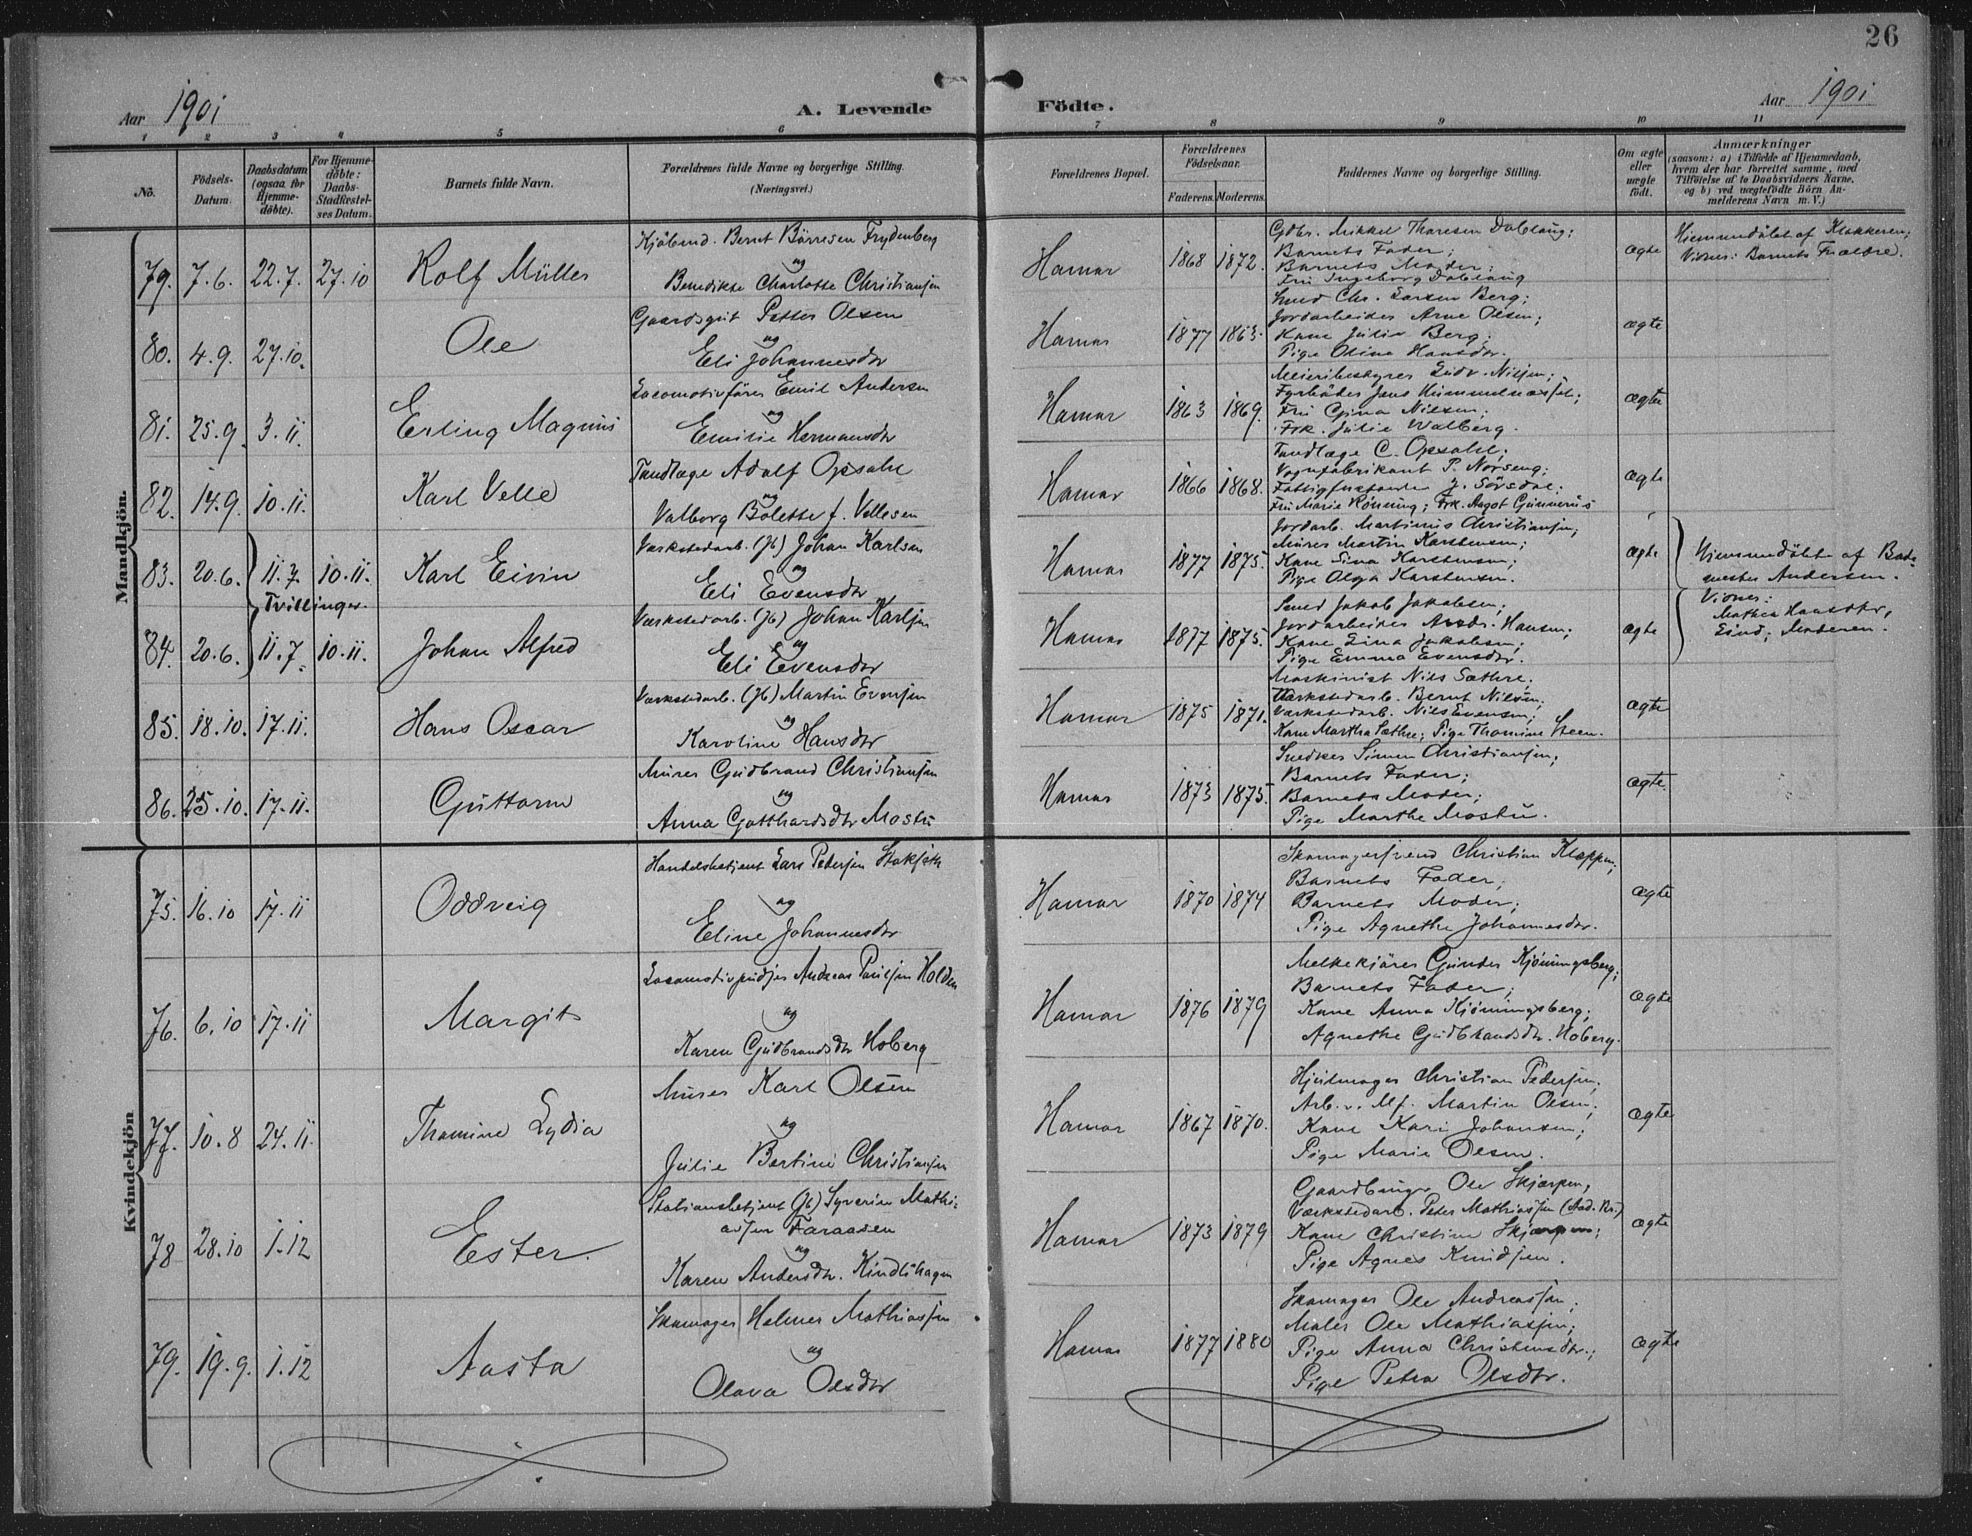 26
Aar 1901
A. Levende Födte.
Aar 1901
1 2 3 4 5 6 7 8 9 10 11
No.
Födsels-Datum.
Daabsdatum (ogsaa for Hjemme-döbte).
For Hjemme-döbte: Daabs-Stadfæstel-ses Datum.
Barnets fulde Navn.
Forældrenes fulde Navne og borgerlige Stilling. (Næringsvei.)
Forældrenes Bopæl.
Forældrenes Födselsaar.
Faderens. Moderens.
Faddernes Navne og borgerlige Stilling.
Om ægte eller uægte födt.
Anmærkninger
(saasom: a) i Tilfælde af Hjemmedaab, hvem der har forrettet samme, med Tilföielse af to Daabsvidners Navne, og b) ved uægtefödte Börn An-melderens Navn m. V.)
Mandkjön.
79. 7.6. 22.7. 27.10 Rolf Müller
Kjöbmd. Bernt Börresen Frydenberg
og
Benedikte Charlotte Christiansen
Hamar 1868 1872.
Gdbr. Mikkel Thoresen Dablaug;
Barnets Fader;
Barnets Moder;
Fru Ingeborg Dablaug
ægte
Hjemmedöbt af Klokkeren;
Vidner: Barnets Forældre.
80. 4.9. 27.10. Ole
Gaardsgut Petter Olsen
og
Eli Johannesdtr
Hamar 1877 1863.
Smed Chr. Larsen Berg;
Jordarbeider Arne Olsen;
Kone Julie Berg;
Pige Oline Hansdtr.
ægte
81. 25.9. 3.11. Erling Magnus
Locomotivförer Emil Andersen
og
Emilie Hermansdtr
Hamar 1863 1869.
Meieribestyrer Ludv. Nilsen;
Fyrböder Jens
Fru Gina Nilsen;
Frk. Julie Walberg.
ægte
82. 14.9. 10.11. Karl Velle
Tandlæge Adolf Opsahl
og
Valborg Bolette f. Vellesen
Hamar 1866 1868.
Tandlæge C. Opsahl;
Vognfabrikant P. Norseng;
Fattigforstander J. Sörsdal;
Fru Marie Rönning; Frk. Aagot Gunnerus
ægte
83. 20.6. 11.7. 10.11. Karl Eivin
Tvillinger.
Værkstedarb. (Jb) Johan Karlsen
og
Eli Evensdtr
Hamar 1877 1875.
Jordarb. Martinus Christiansen;
Murer Martin Karstensen;
Kone Lina Karstensen;
Pige Olga Karstensen.
ægte
Hjemmedöbt af Bad-
mester Andersen.
84. 20.6. 11.7. 10.11. Johan Alfred
Værkstedarb. (Jb) Johan Karlsen
og
Eli Evensdtr
Hamar 1877 1875.
Smed Jakob Jakobsen;
Jordarbeider Andr. Hansen;
Kone Lina Jakobsen;
Pige Emma Evensdtr.
ægte
Vidner:
Mathea Hansdtr,
Moderen.
85. 18.10. 17.11. Hans Oscar
Værkstedarb. (Jb) Martin Evensen
og
Karoline Hansdtr
Hamar 1875 1871.
Maskinist Nils Sæthre.
Værkstedarb. Bernt Nilsen;
Værkstedarb. Nils Evensen;
Kone Martha Sæthre; Pige Thomine Steen.
ægte
86. 25.10. 17.11. Guttorm
Murer Gudbrand Christiansen
og
Anna Gotthardsdtr Mostu
Hamar 1873 1875.
Snedker Simen Christiansen;
Barnets Fader;
Barnets Moder;
Pige Marthe Mostu.
ægte
Kvindekjön
75. 16.10 17.11 Oddveig
Handelsbetjent Lars Pedersen
og
Eline Johannesdtr
Hamar 1870 1874
Skomagersvend Christian Kloppen;
Barnets Fader;
Barnets Moder;
Pige Agnethe Johannesdtr.
ægte
76. 6.10 17.11 Margit
Locomotivpudser Andreas Paulsen Holden
og
Karen Gudbrandsdtr Hoberg
Hamar 1876 1879
Melkekjörer Gunder Kjönningsberg;
Barnets Fader;
Kone Anna Kjönningsberg;
Agnethe Gudbrandsdtr. Hoberg.
ægte
77. 10.8 24.11. Thomine Lydia
Murer Karl Olsen
og
Julie Bertine Christiansen
Hamar 1867 1870.
Hjulmager Christian Pedersen;
Arb. v. Mf. Martin Olsen;
Kone Kari Johansen;
Pige Marie Olsen.
ægte
78 28.10 1.12 Ester
Stationsbetjent (Jb) Syverin Mathi-
assen Faraasen
og
Karen Andersdtr. Kindlihagen
Hamar 1873 1879
Gaardbruger Ole Skjærpen;
Værkstedarb. Peter Mathiassen (Aad. Kr.)
Kone Christine Skjærpen;
Pige Agnes Knudsen.
ægte
79. 19.9. 1.12 Aasta
Skomager Helmer Mathiassen
og
Olava Olsdtr
Hamar 1877 1880
Skomager Ole Andreassen;
Maler Ole Mathiassen;
Pige Anna Christensdtr.;
Pige Petra Olsdtr.
ægte